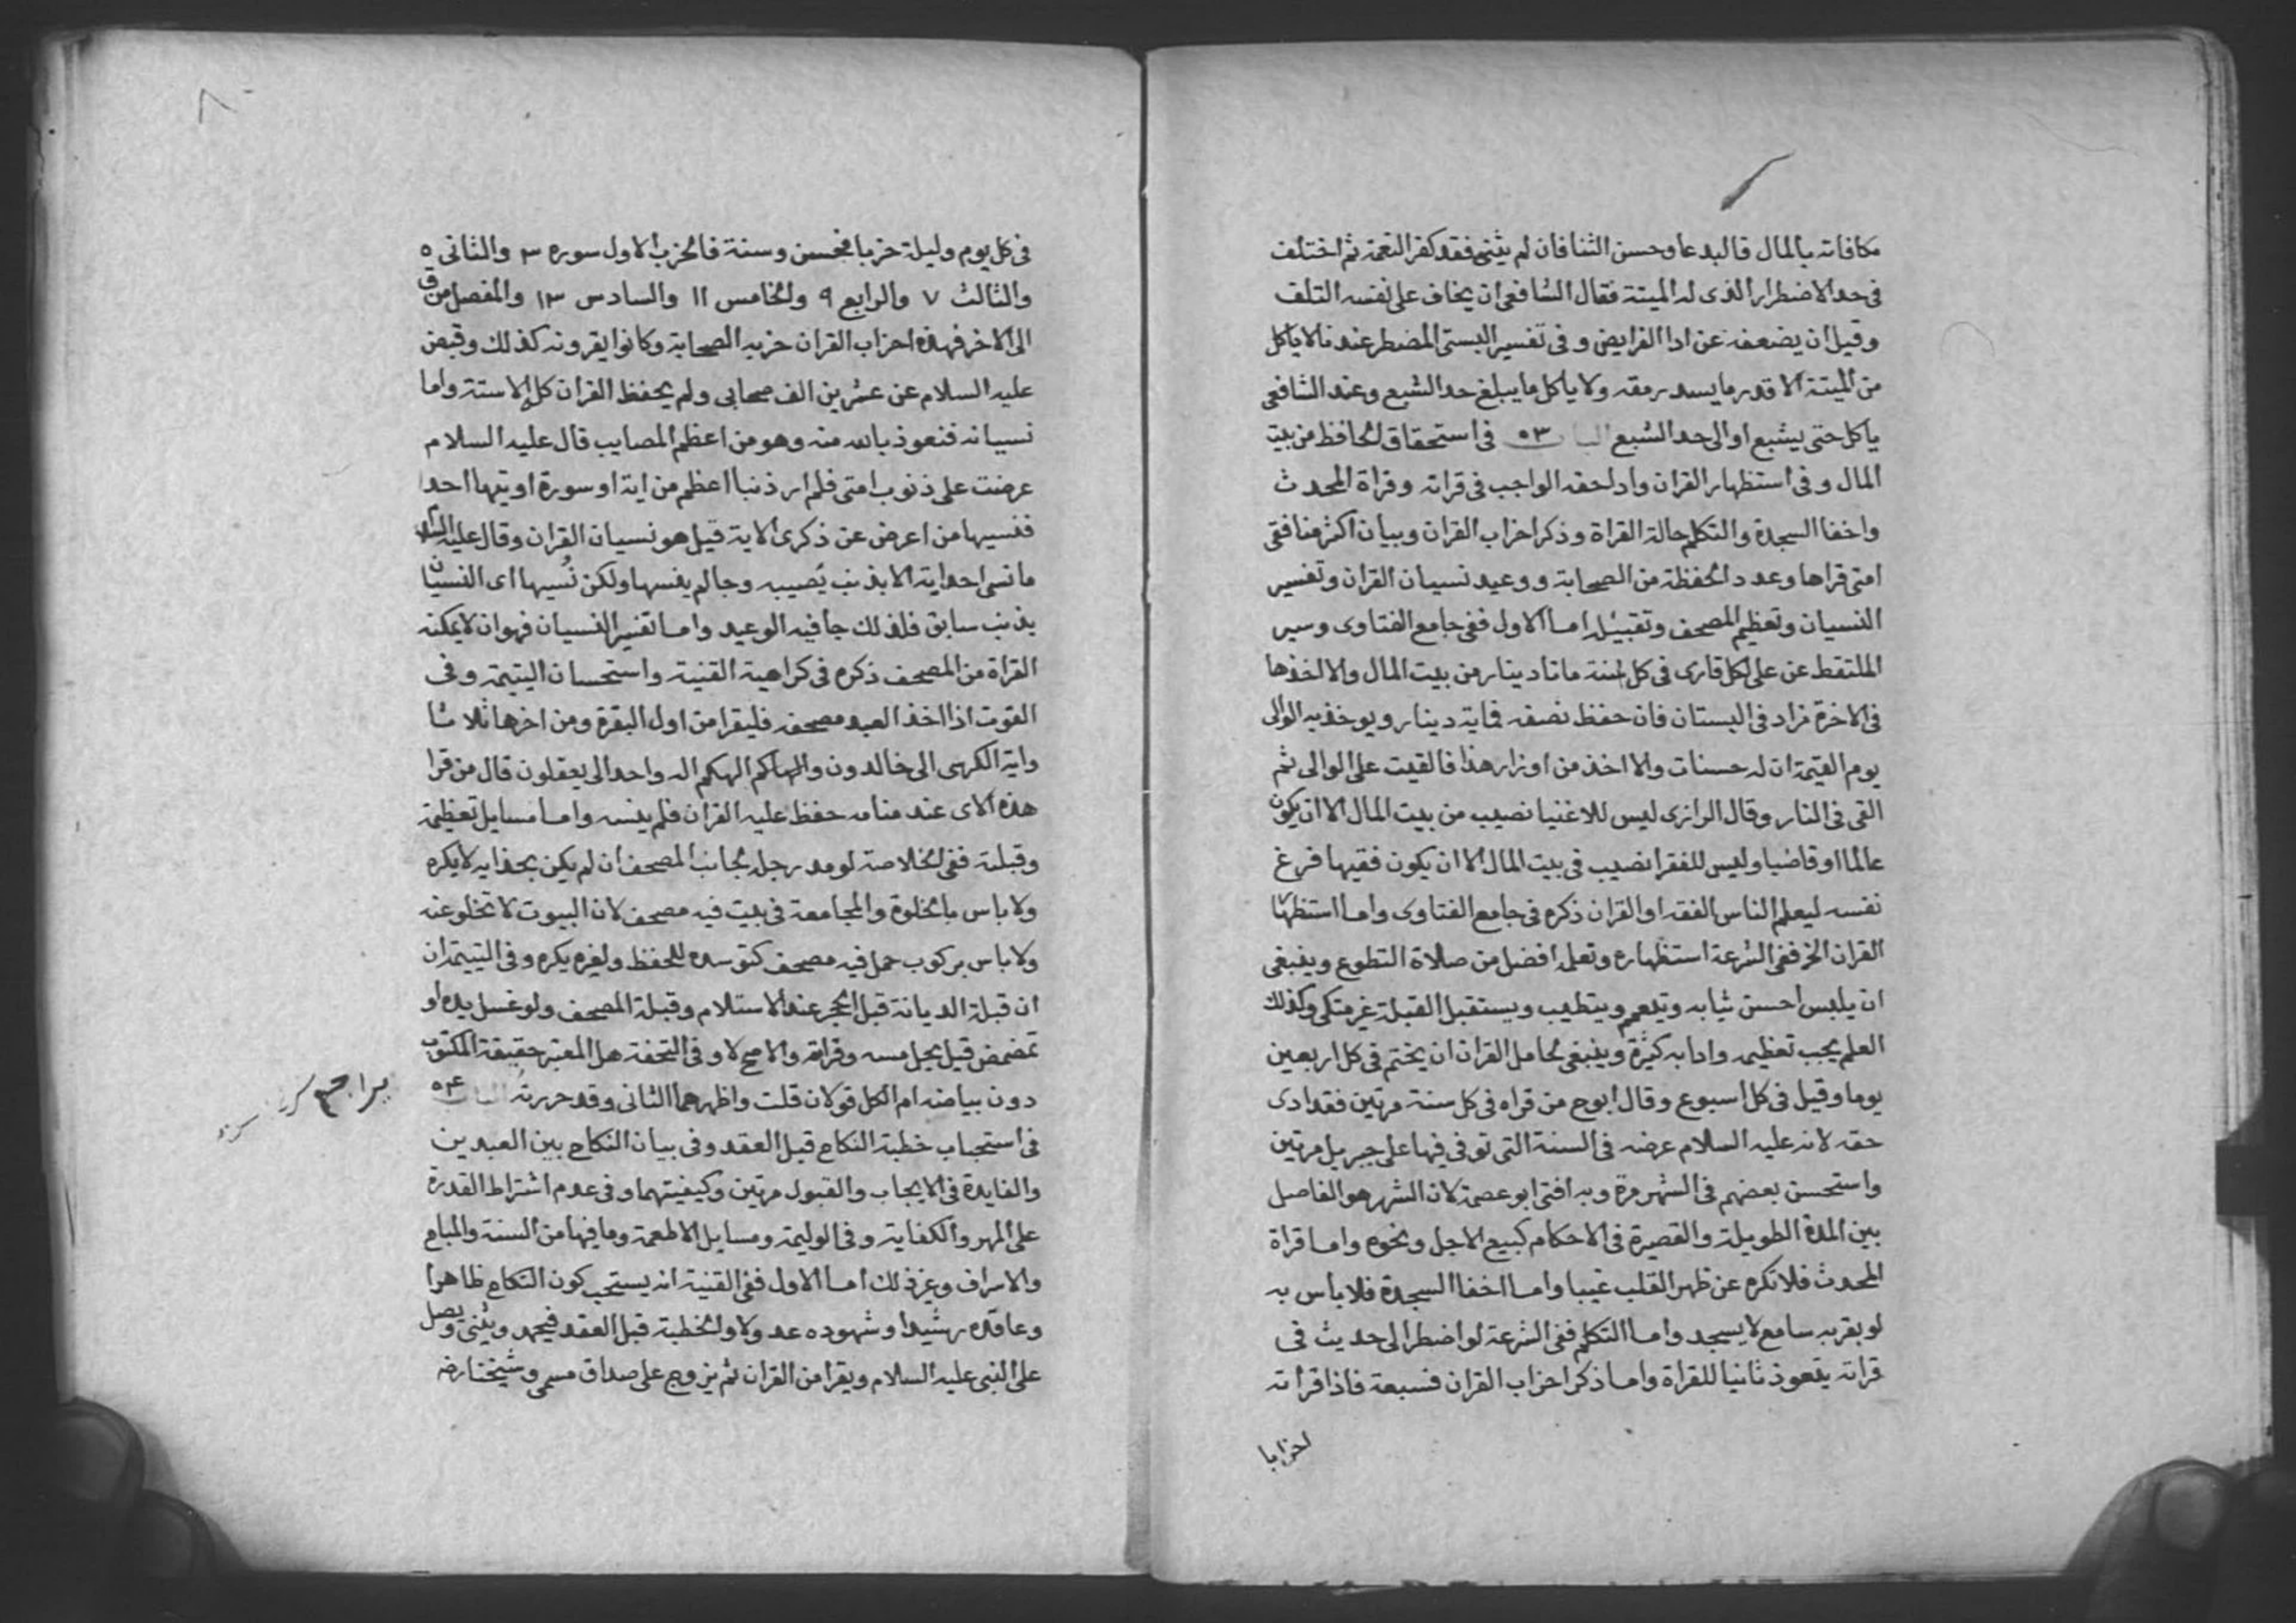 مكافاته بالمال فالبدعا وحسن الثنا فان لم يثنى فقد كفر النعمة ثم اختلف
فى حد الاضطرار الذى له الميتة فقال الشافعى ان يخاف على نفسه التلف
وقيل ان يضعفه عن ادا الفرايض وفى تفسير البستى المضطر عندنا لا ياكل
من الميتة الا قدر ما يسد رمقه ولا ياكل ما يبلغ حد الشبع وعند الشافعى
ياكل حتى يشبع او الى حد الشبع الباب ٥٣ فى استحقاق الحافظ من بيت
المال وفى استظهار القران وادا حقه الواجب فى قراته وقراة المحدث
واخفا السجدة والتكلم حالة القراة وذكر احزاب القران وبيان اكثر منافقى
امتى قراها وعدد الحفظة من الصحابة ووعيد نسيان القران وتفسير
النسيان وتعظيم المصحف وتقبيله اما الاول ففى جامع الفتاوى وسير
الملتقط عن على لكل قارى فى كل سنة ماتا دينار من بيت المال والا اخذها
فى الاخرة زاد فى البستان فان حفظ نصفه فماية دينار ويوخذ به الوالى
يوم القيمة ان له حسنات والا اخذ من اوزار هذا فالقيت على الوالى ثم
القى فى النار وقال الرازى ليس للاغنيا نصيب من بيت المال الا ان يكون
عالما او قاضيا وليس للفقرا نصيب فى بيت المال الا ان يكون فقيها فرغ
نفسه ليعلم الناس الفقه او القران ذكره فى جامع الفتاوى واما استظهار
القران الخ ففى الشرعة استظهاره وتعلمه افضل من صلاة التطوع وينبغى
ان يلبس احسن ثيابه ويتعمم ويتطيب ويستقبل القبلة غير متكى وكذلك
العلم يجب تعظيمه وادابه كثيرة وينبغى لحامل القران ان يختم فى كل اربعين
يوما وقيل فى كل اسبوع وقال ابوح من قراه فى كل سنة مرتين فقد ادى
حقه لانه عليه السلام عرضه فى السنة التى توفى فيها على جبريل مرتين
واستحسن بعضهم فى الشهر مرة وبه افتى ابو عصمة لان الشهر هو الفاصل
بين المدة الطويلة والقصيرة فى الاحكام كبيع الاجل ونحوه واما قراة
المحدث فلا تكره عن ظهر القلب غيبا واما اخفا السجدة فلا باس به
لو بقربه سامع لا يسجد واما التكلم ففى الشرعة لو اضطر الى حديث فى
قراته يتعوذ ثانيا للقراة واما ذكر احزاب القران فسبعة فاذا قراته
احزابا
٨٠
فى كل يوم وليلة حزبا فحسن وسنة فالحزب الاول سوره ٣ والثانى ٥
والثالث ٧ والرابع ٩ والخامس ١١ والسادس ١٣ والمفصل من ق
الى الاخر فهذه احزاب القران حزبه الصحابة وكانوا يقرونه كذلك وقبض
عليه السلام عن عشرين الف صحابى ولم يحفظ القران كله الا ستة واما
نسيانه فنعوذ بالله منه وهو من اعظم المصايب قال عليه السلام
عرضت على ذنوب امتى فلم ار ذنبا اعظم من اية او سورة اوتيها احد
فنسيها من اعرض عن ذكرى الاية قيل هو نسيان القران وقال عليه السلام
ما نسى احد اية الا بذنب يصيبه وجا لم ينسها ولكن نُسيها اى النسيان
بذنب سابق فلذلك جا فيه الوعيد واما تفسير النسيان فهو ان لا يمكنه
القراة من المصحف ذكره فى كراهية القنية واستحسان اليتيمة وفى
القوت اذا اخذ العبد مصحفه فليقرا من اول البقرة ومن اخرها ثلاثا
واية الكرسى الى خالدون والهاكم الهكم اله واحد الى يعقلون قال من قرا
هذه الاى عند منامه حفظ عليه القران فلم ينسه واما مسايل تعظيمه
وقبلته ففى الخلاصة لو مد رجله لجانب المصحف ان لم يكن بحذايه لا يكره
ولا باس بالخلوة والمجامعة فى بيت فيه مصحف لان البيوت لا تخلو عنه
ولا باس بركوب حمل فيه مصحف كتوسده للحفظ ولغيره يكره وفى اليتيمة ان
ان قبلة الديانة قبل الحجر عند الاستلام وقبلة المصحف ولو غسل يده او
تمضمض قيل يحل مسه وقراته والاصح لا وفى التحفة هل المعتبر حقيقة المكتوب
دون بياضه ام الكل قولان قلت واظهرهما الثانى وقد حررته الباب ٥٤
فى استحباب خطبة النكاح قبل العقد وفى بيان النكاح بين العيدين
والفايدة فى الايجاب والقبول مرتين وكيفيتهما وفى عدم اشتراط القدرة
على المهر والكفاية وفى الوليمة ومسايل الاطعمة وما فيها من السنة والمباح
والاسراف وغير ذلك اما الاول ففى القنية انه يستحب كون النكاح ظاهرا
وعاقده رشيدا وشهوده عدولا والخطبة قبل العقد فيحمد ويثنى ويصل
على النبى عليه السلام ويقرا من القران ثم يزوج على صداق مسمى وشيختنا رضه
يراجع